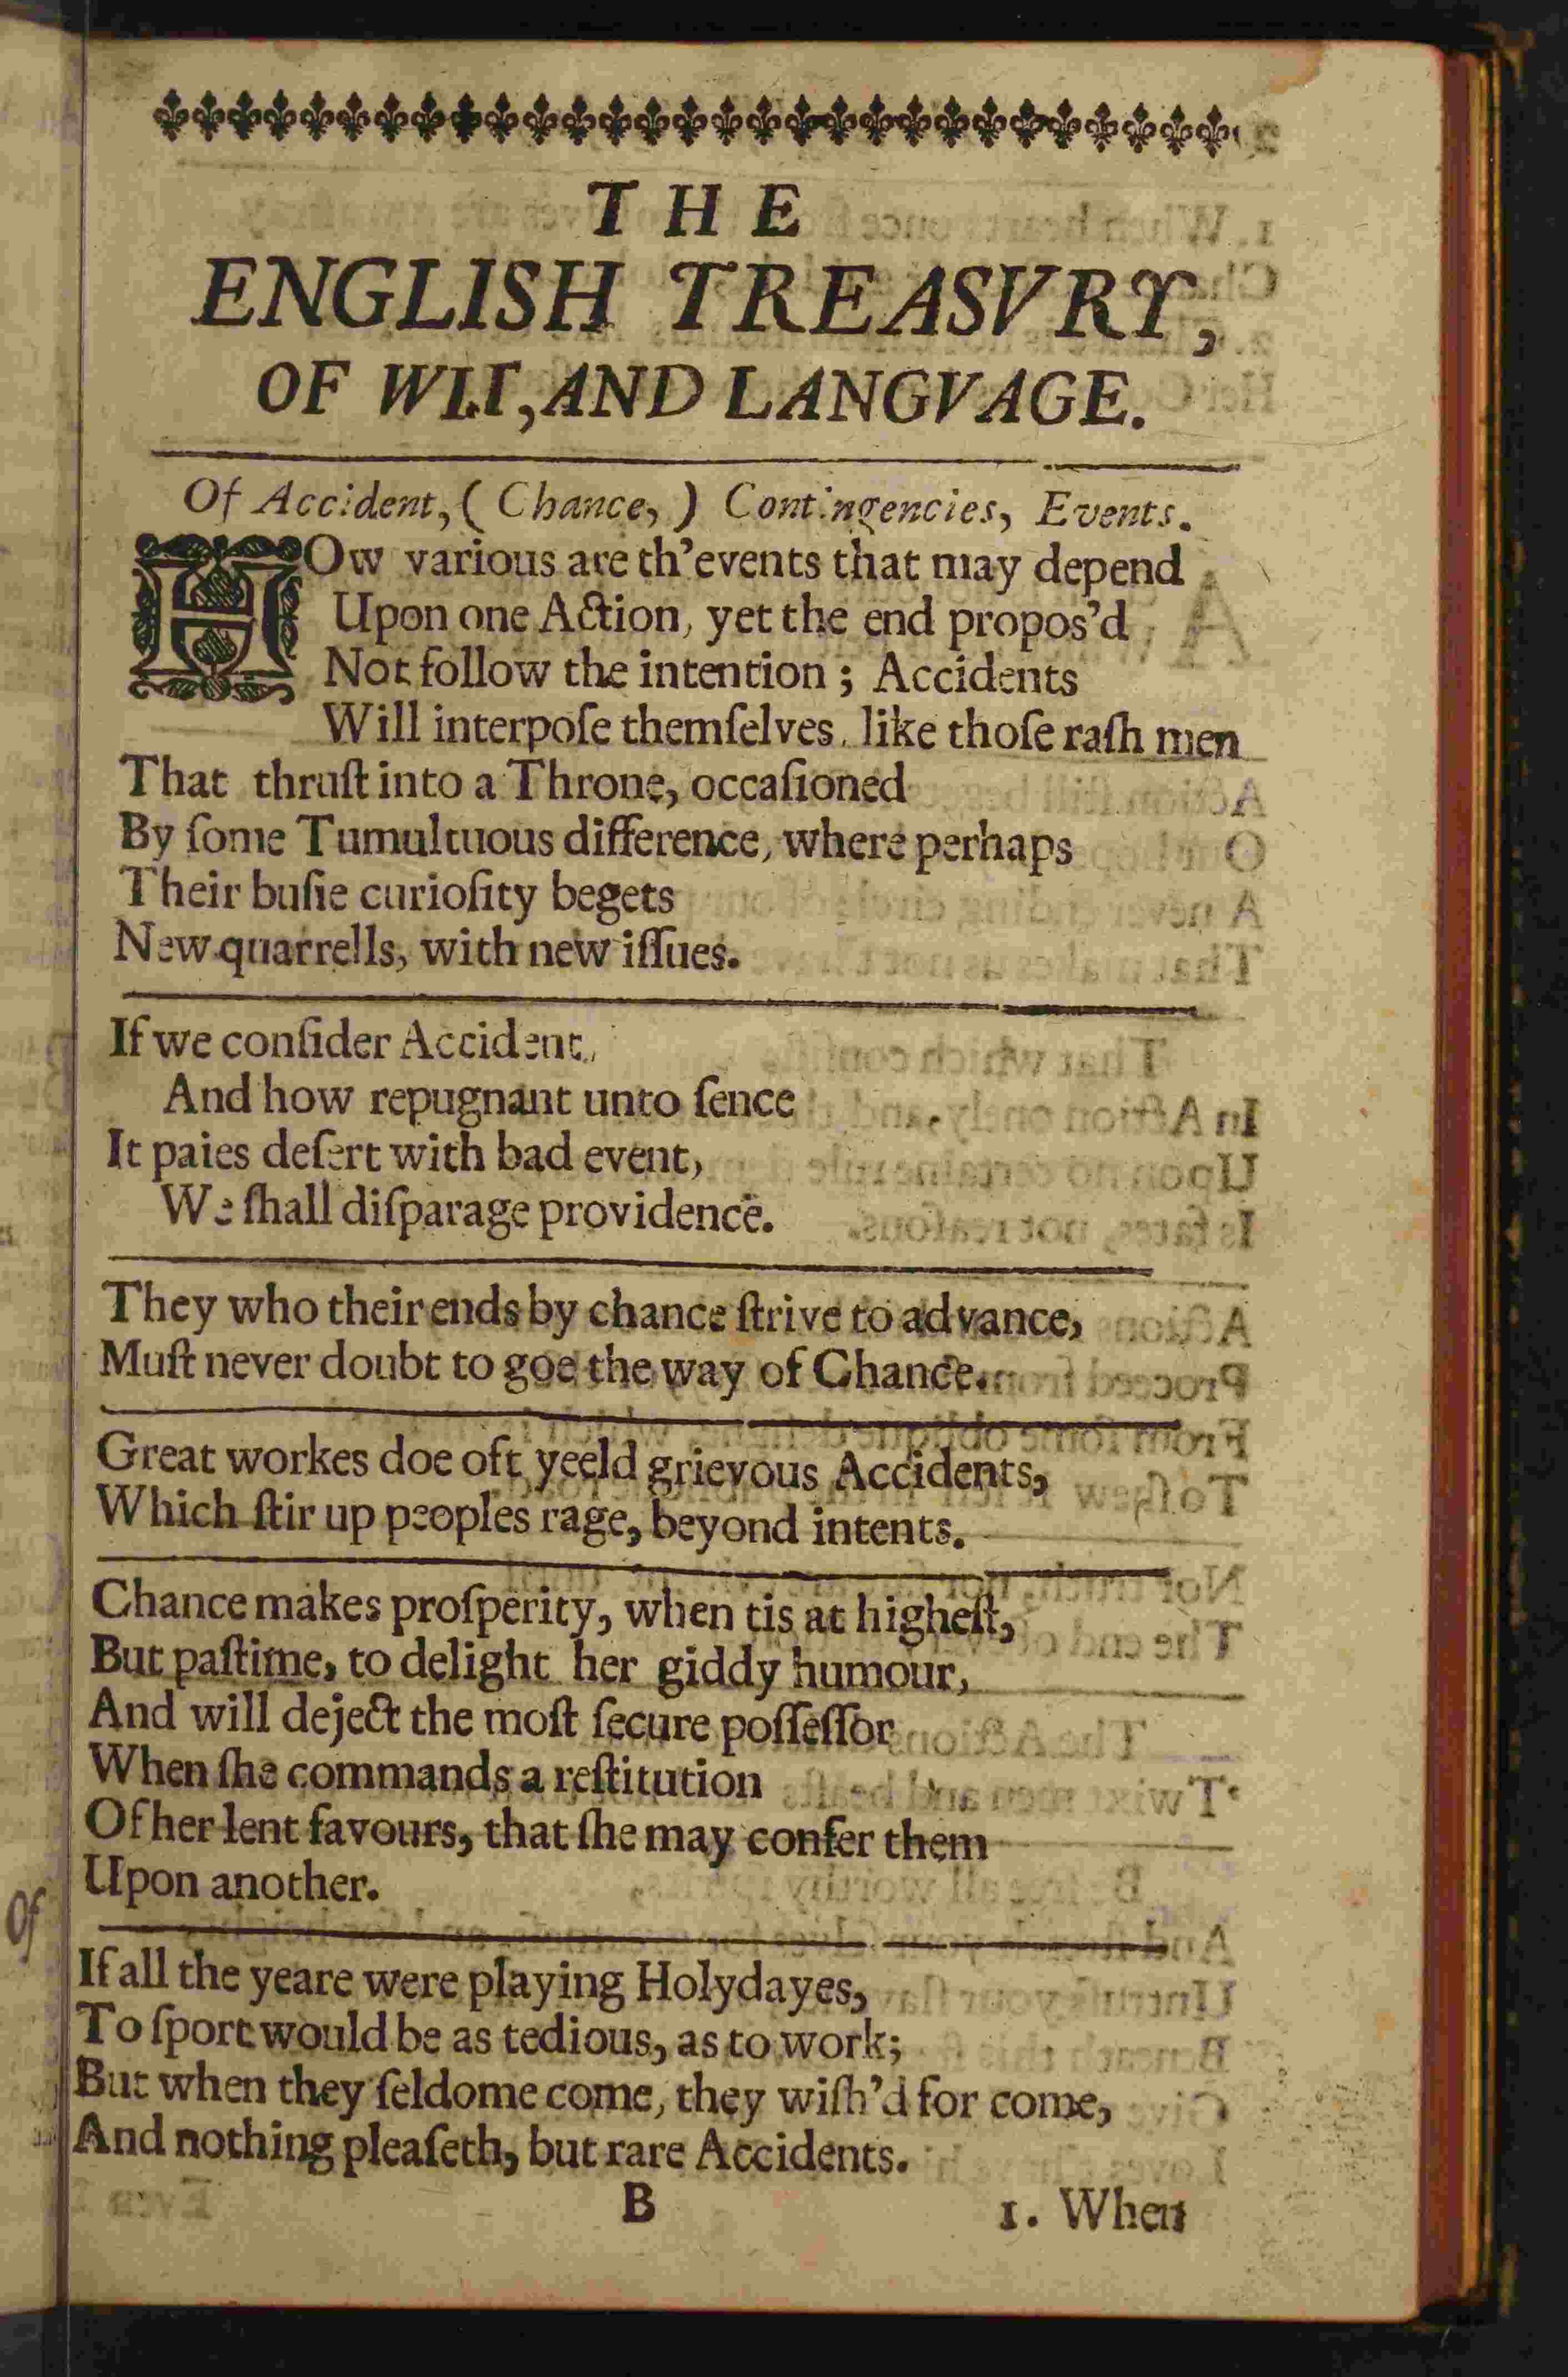 THE
ENGLISH TREASVRY,
OF WIT, AND LANGVAGE.
Of Accident, ( Chance, ) Contingencies, Events.
HOw various are th’events that may depend
Upon one Action, yet the end propos’d
Not follow the intention ; Accidents
Will interpoſe themſelves, like thoſe raſh men
That thruſt into a Throne, occaſioned
By ſome Tumultuous difference, where perhaps
Their buſie curioſity begets
New quarrells, with new iſſues.
If we conſider Accident,
And how repugnant unto ſence
It paies deſert with bad event,
We ſhall diſparage providence.
They who their ends by chance ſtrive to advance,
Muſt never doubt to goe the way of Chance.
Great workes doe oft yeeld grievous Accidents,
Which ſtir up peoples rage, beyond intents.
Chance makes proſperity, when tis at higheſt,
But paſtime, to delight her giddy humour,
And will deject the moſt ſecure poſſeſſor
When ſhe commands a reſtitution
Of her lent favours, that ſhe may confer them
Upon another.
If all the yeare were playing Holydayes,
To ſport would be as tedious, as to work;
But when they ſeldome come, they wiſh’d for come,
And nothing pleaſeth, but rare Accidents.
B
1. When
Of